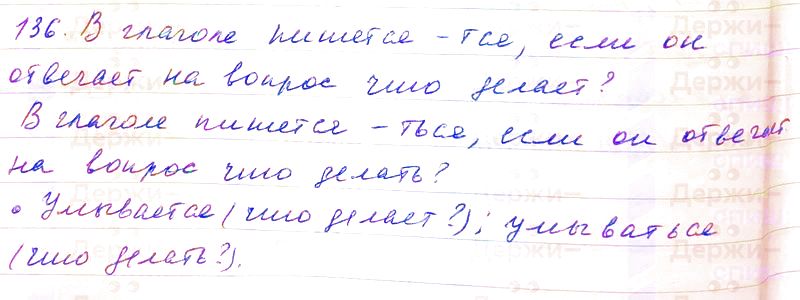 136. В глаголе пишется -тся, если он
отвечает на вопрос что делает?
В глаголе пишется -ться, если он отвечает
на вопрос что делать?
• Умывается (что делает?); умываться
(что делать?).